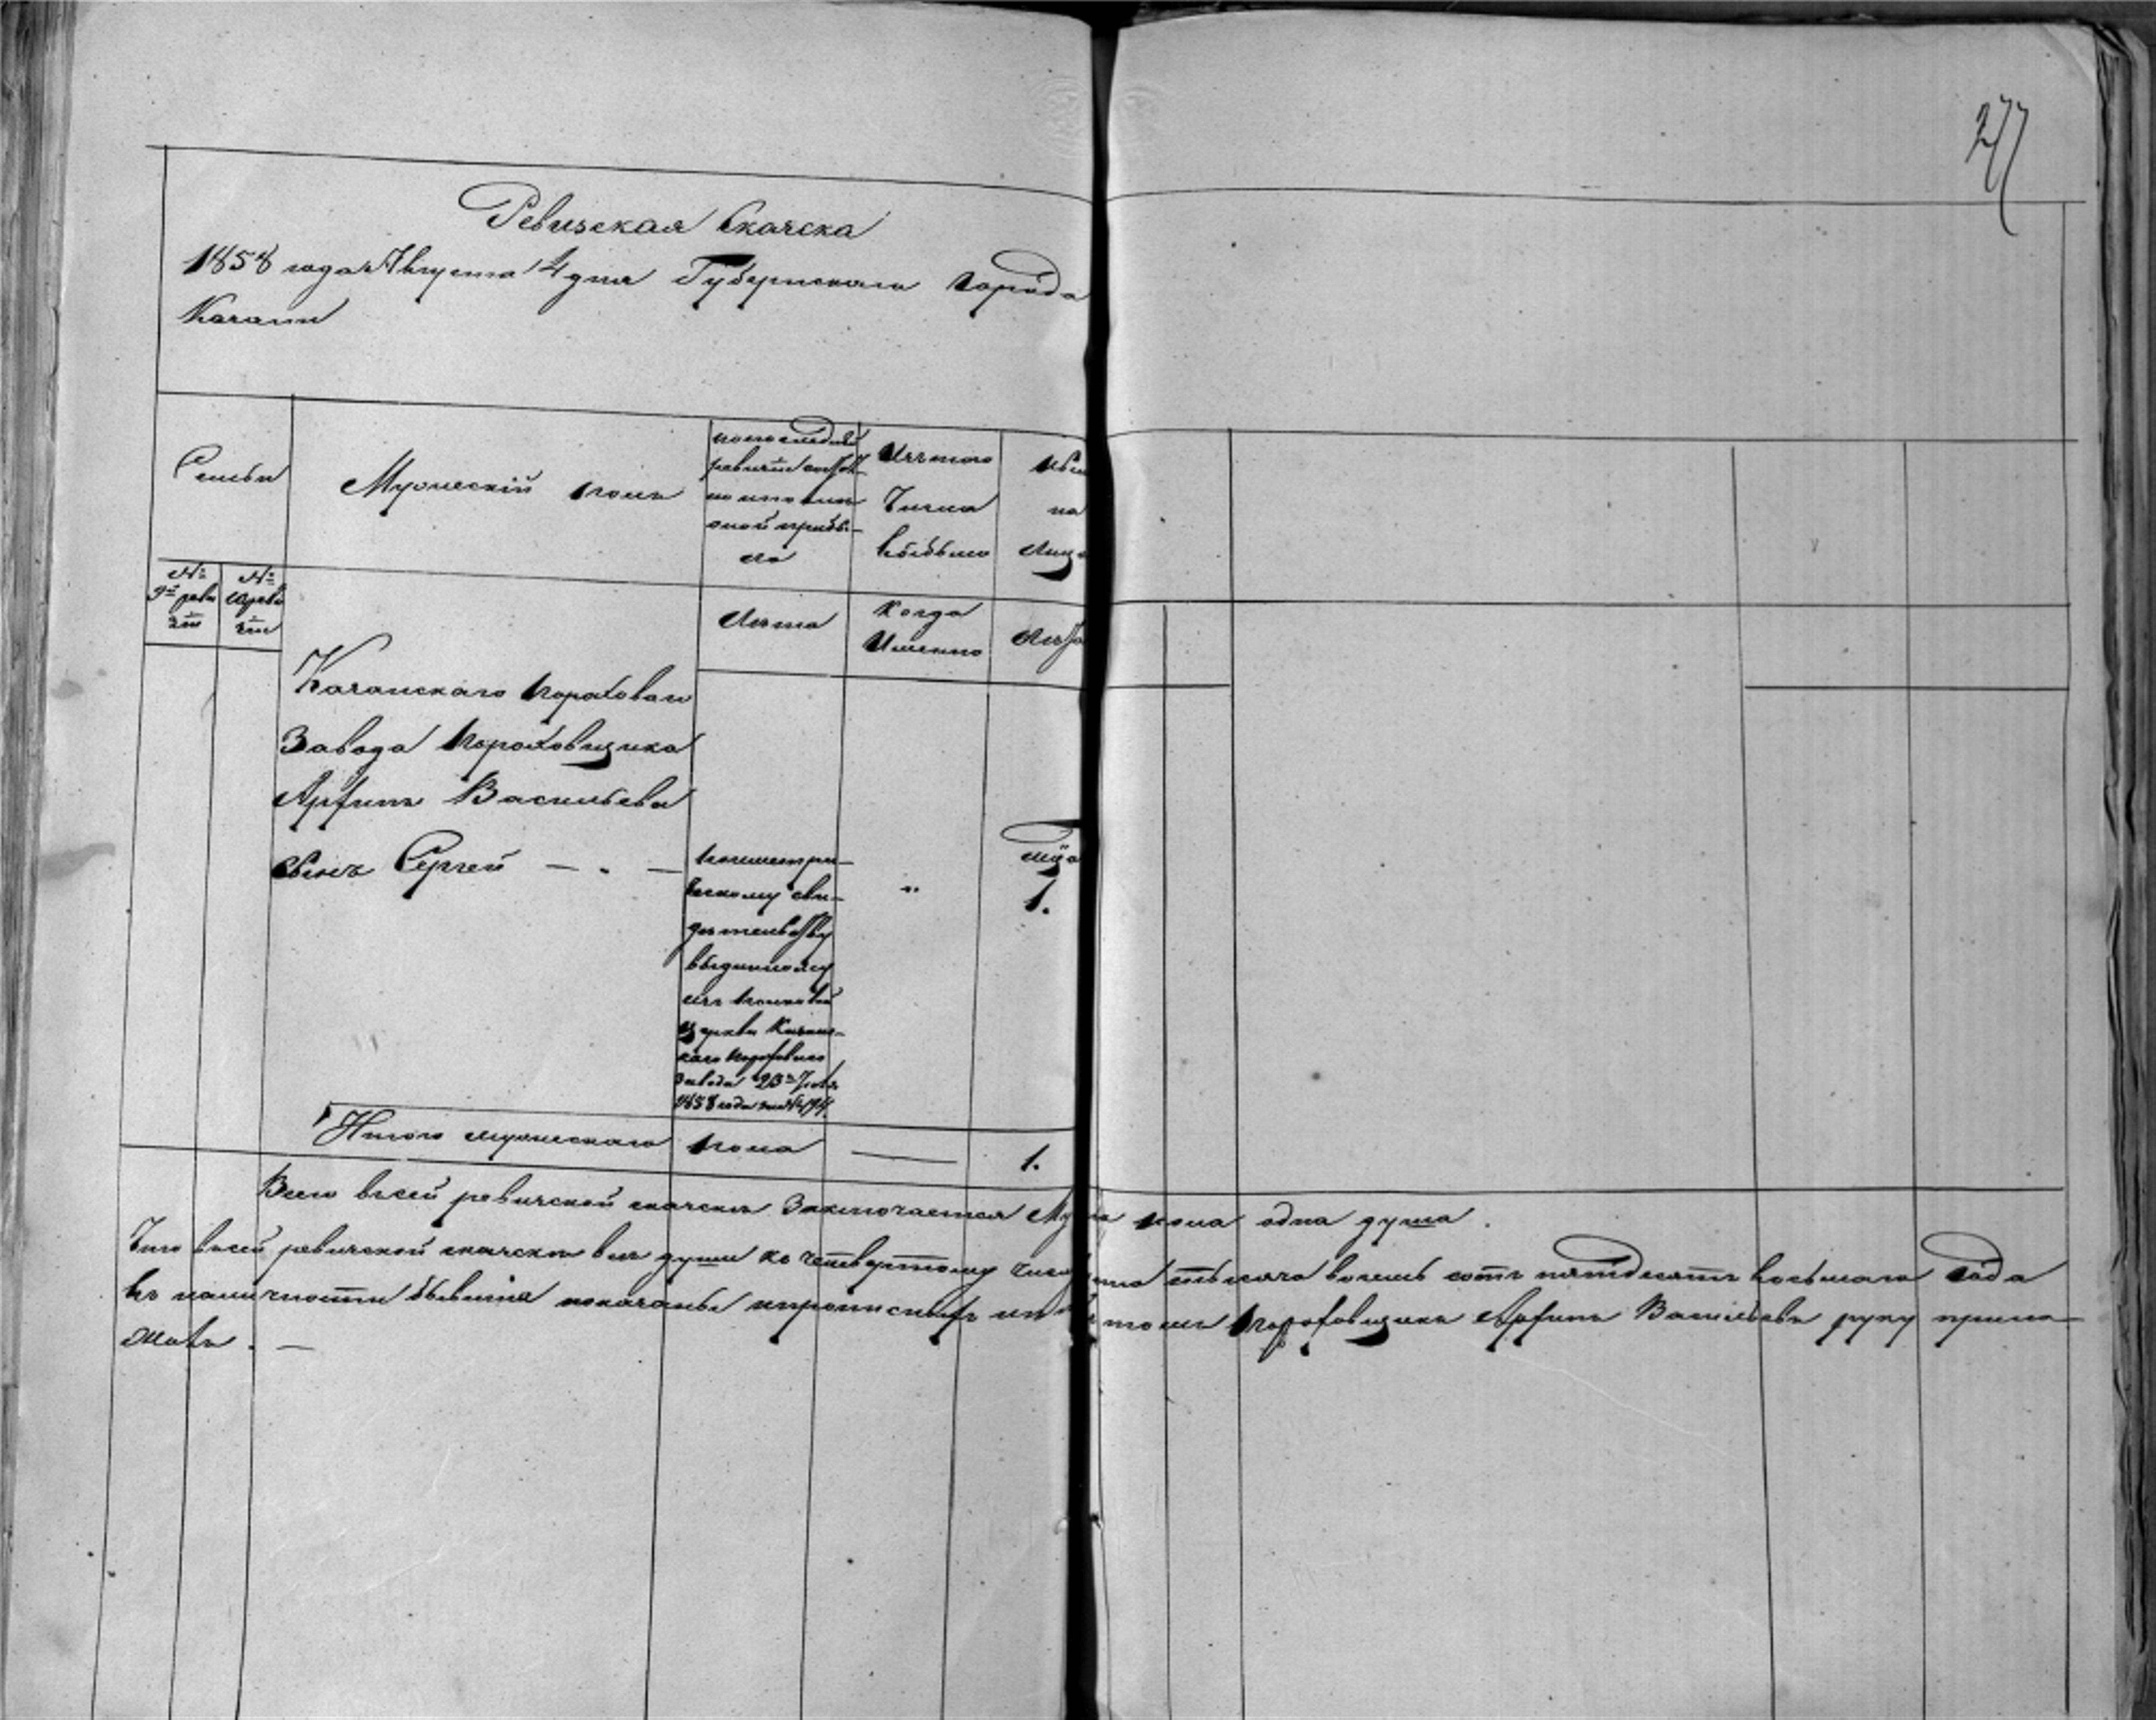 277
Ревизская Сказска
1858 года Августа 14 дня Губернскаго города
Казани
Семьи
Мужескій полъ
По последней
ревизіи состоя-
ло и после
оной прибы-
ло
Изъ того
Числа
выбыло
Ныне
на
Лицо
№
9й реви
зіи
№
10 реви
зіи
Лета
Когда
Именно
Лета
Казанскаго Пороховаго
Завода Пороховщика
Архипа Васильева
сынъ Сергей — . —
По метри-
ческому сви-
детельству
выданному
изъ
церкви Казанс-
каго Пороховаго
Завода 23го
1858 года за №
„
1.
Итого мужескаго пола — 1.
Всего въ сей ревизской сказске Заключается Муж пола одна душа.
Что въ сей ревизской сказске все души къ четвертому тысяча восемь сотъ пятдесятъ восьмаго года
въ наличности бывшія показаны и прописныхъ нетъ Въ томъ Пороховщикъ Архипъ Васильевъ руку прило-
жилъ. —